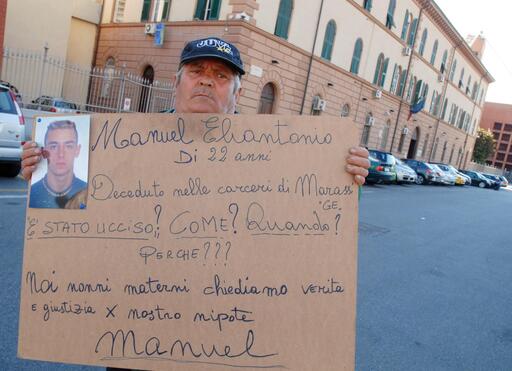 JUVE
Manuel Eliantonio
Di 22 anni
Deceduto nelle carceri di Marassi
GE.
E' STATO UCCISO? COME? Quando?
PERCHE???
Noi nonni materni chiediamo verita
e giustizia x nostro nipote
Manuel